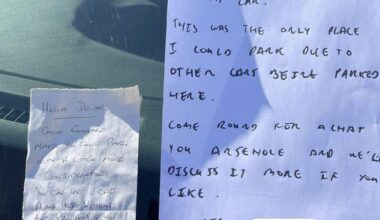 HELLO DRIVER
GOOD
MAYBE YOU COULD PARK
WITH A LITTLE MORE
CONSIDERATION
YOU CAN GET 2 CARS
CAR.
THIS WAS THE ONLY PLACE
I COULD PARK DUE TO
OTHER CARS BEING PARKED
HERE.
COME ROUND FOR A CHAT
YOU ARSEHOLE AND WE'LL
DISCUSS IT MORE IF YOU
LIKE.